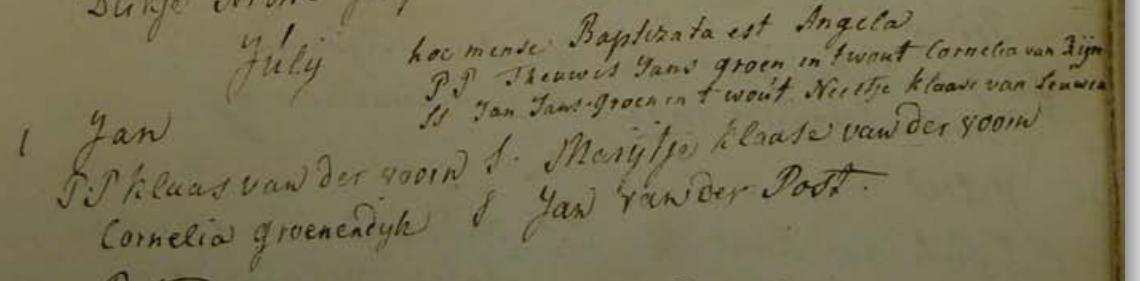 Julij
hoc mense Baptizata est Angela
PP Theuwis Jans groen in t wout Cornelia van Rijn
SS Jan Jans groen in t wout Neeltje klaase van Leuwen
1 Jan
PP klaas van der voorn S. Marijtje klaase van der voorn
Cornelia groenendijk S Jan van der Post.